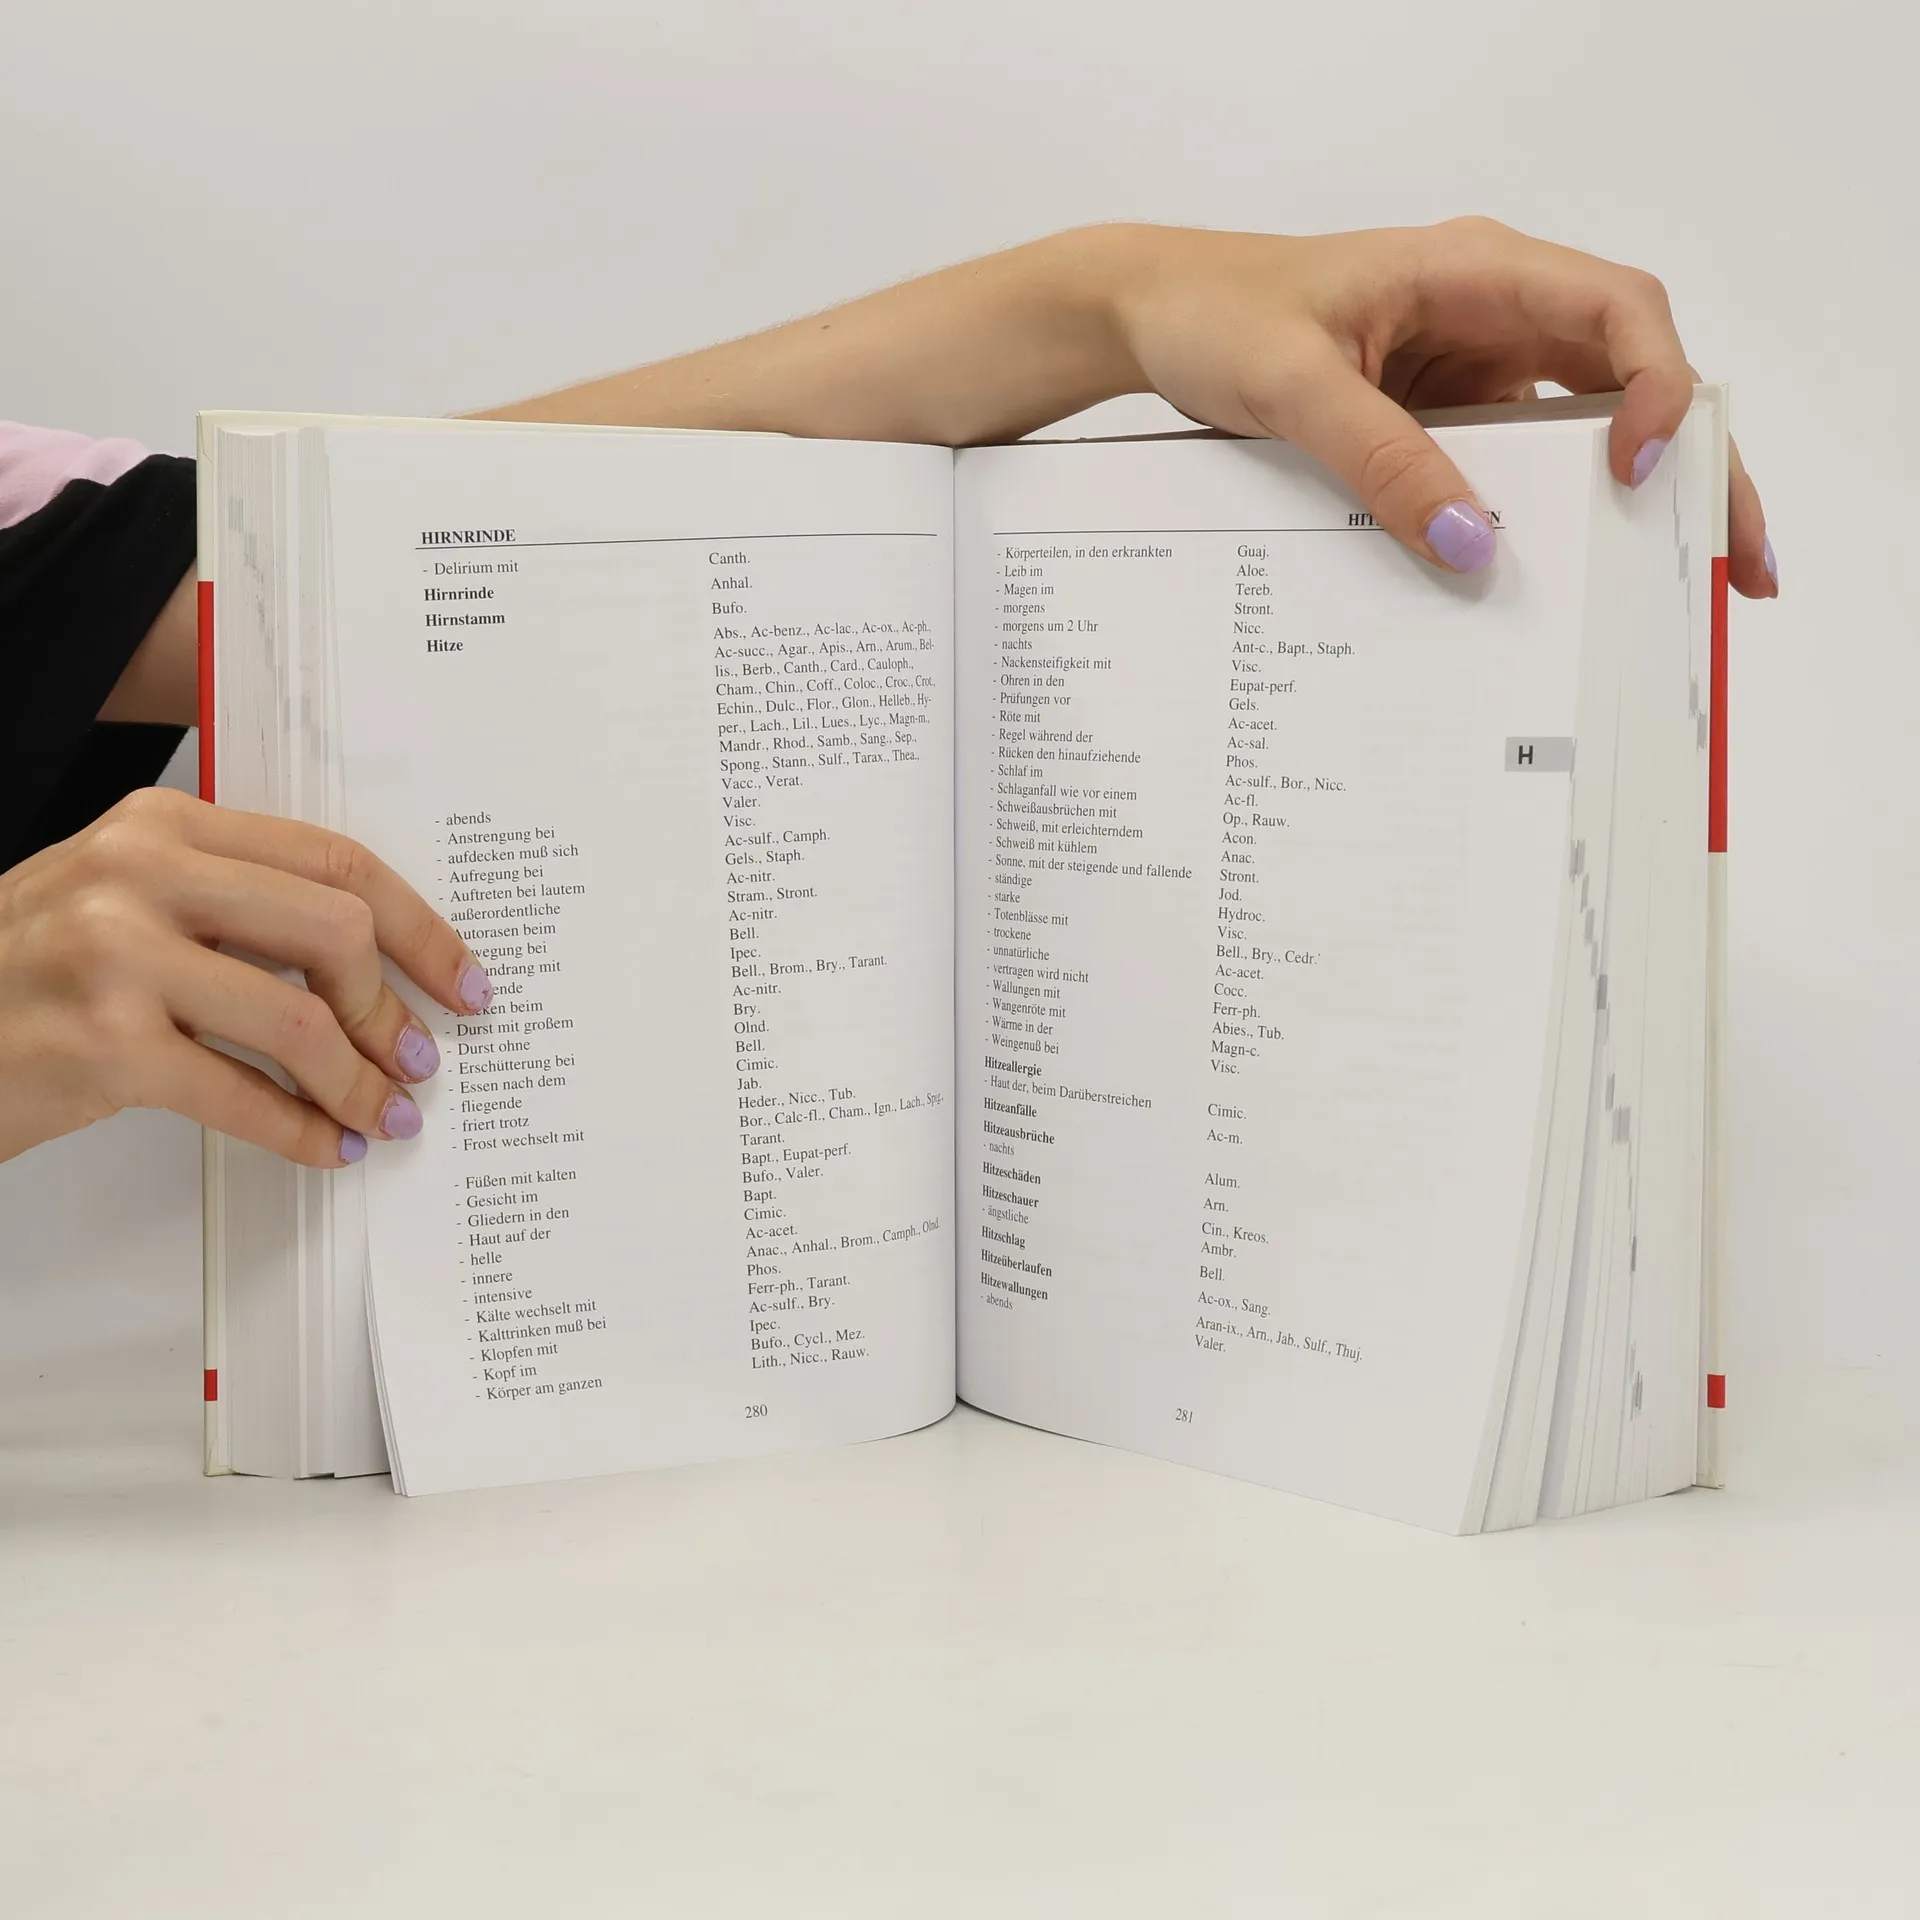 HIRNRINDE
- Delirium mit Canth.
Hirnrinde Anhal.
Hirnstamm Bufo.
Hitze Abs., Ac-benz., Ac-lac., Ac-ox., Ac-ph.,
Ac-succ., Agar., Apis., Arn., Arum., Bel-
lis., Berb., Canth., Card., Cauloph.,
Cham., Chin., Coff., Coloc., Croc., Crot.,
Echin., Dulc., Flor., Glon., Helleb., Hy-
per., Lach., Lil., Lues., Lyc., Magn-m.,
Mandr., Rhod., Samb., Sang., Sep.,
Spong., Stann., Sulf., Tarax., Thea.,
Vacc., Verat.
- abends Valer.
- Anstrengung bei Visc.
- aufdecken muß sich Ac-sulf., Camph.
- Aufregung bei Gels., Staph.
- Auftreten bei lautem Ac-nitr.
- außerordentliche Stram., Stront.
Autorasen beim Ac-nitr.
wegung bei Bell.
andrang mit Ipec.
ende Bell., Brom., Bry., Tarant.
- beim Ac-nitr.
- Durst mit großem Bry.
- Durst ohne Olnd.
- Erschütterung bei Bell.
- Essen nach dem Cimic.
- fliegende Jab.
- friert trotz Heder., Nicc., Tub.
- Frost wechselt mit Bor., Calc-fl., Cham., Ign., Lach., Spig.,
Tarant.
- Füßen mit kalten Bapt., Eupat-perf.
- Gesicht im Bufo., Valer.
- Gliedern in den Bapt.
- Haut auf der Cimic.
- helle Ac-acet.
- innere Anac., Anhal., Brom., Camph., Olnd.
- intensive Phos.
- Kälte wechselt mit Ferr-ph., Tarant.
- Kalttrinken muß bei Ac-sulf., Bry.
- Klopfen mit Ipec.
- Kopf im Bufo., Cycl., Mez.
- Körper am ganzen Lith., Nicc., Rauw.
280
- Körperteilen, in den erkrankten Guaj.
- Leib im Aloe.
- Magen im Tereb.
- morgens Stront.
- morgens um 2 Uhr Nicc.
- nachts Ant-c., Bapt., Staph.
- Nackensteifigkeit mit Visc.
- Ohren in den Eupat-perf.
- Prüfungen vor Gels.
- Röte mit Ac-acet.
- Regel während der Ac-sal.
- Rücken den hinaufziehende Phos.
- Schlaf im Ac-sulf., Bor., Nicc.
- Schlaganfall wie vor einem Ac-fl.
- Schweißausbrüchen mit Op., Rauw.
- Schweiß, mit erleichterndem Acon.
- Schweiß mit kühlem Anac.
- Sonne, mit der steigende und fallende Stront.
- ständige Jod.
- starke Hydroc.
- Totenblässe mit Visc.
- trockene Bell., Bry., Cedr.
- unnatürliche Ac-acet.
- vertragen wird nicht Cocc.
- Wallungen mit Ferr-ph.
- Wangenröte mit Abies., Tub.
- Wärme in der Magn-c.
- Weingenuß bei Visc.
Hitzeallergie
- Haut der, beim Darüberstreichen Cimic.
Hitzeanfälle Ac-m.
Hitzeausbrüche
- nachts Alum.
Hitzeschäden Arn.
Hitzeschauer Cin., Kreos.
- ängstliche Ambr.
Hitzschlag Bell.
Hitzeüberlaufen Ac-ox., Sang.
Hitzewallungen Aran-ix., Arn., Jab., Sulf., Thuj.
- abends Valer.
H
281